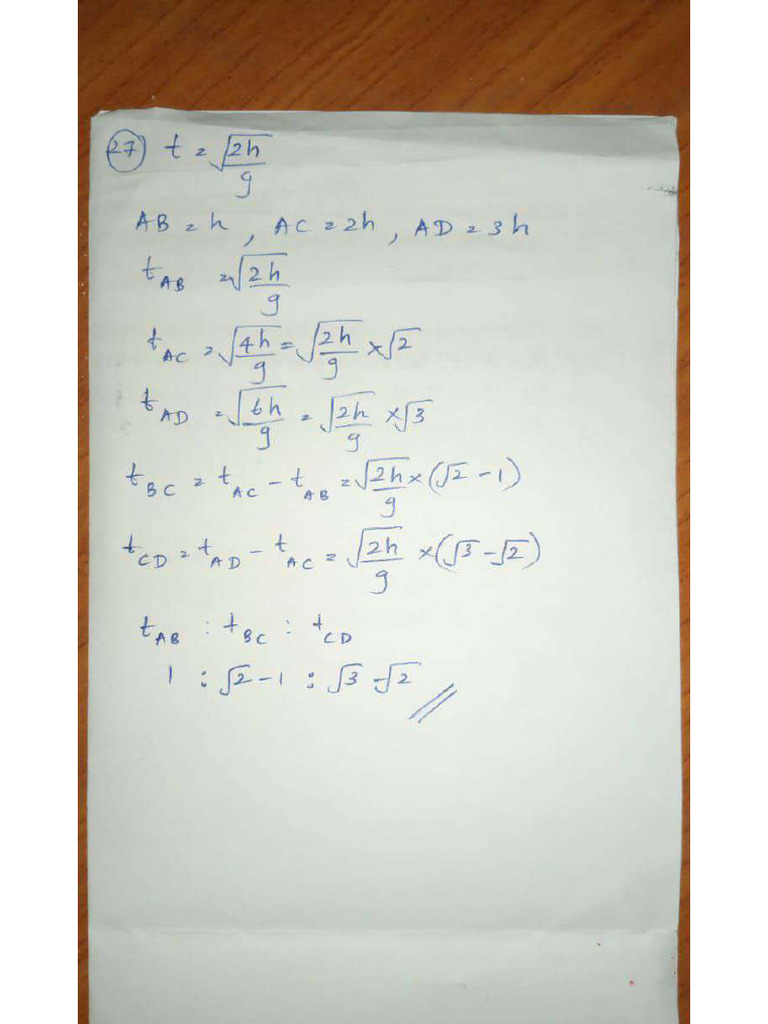 27) t = √(2h/g)
AB = h, AC = 2h, AD = 3h
t_AB = √(2h/g)
t_AC = √(4h/g) = √(2h/g) × √2
t_AD = √(6h/g) = √(2h/g) × √3
t_BC = t_AC - t_AB = √(2h/g) × (√2 - 1)
t_CD = t_AD - t_AC = √(2h/g) × (√3 - √2)
t_AB : t_BC : t_CD
1 : √2 - 1 : √3 - √2 //